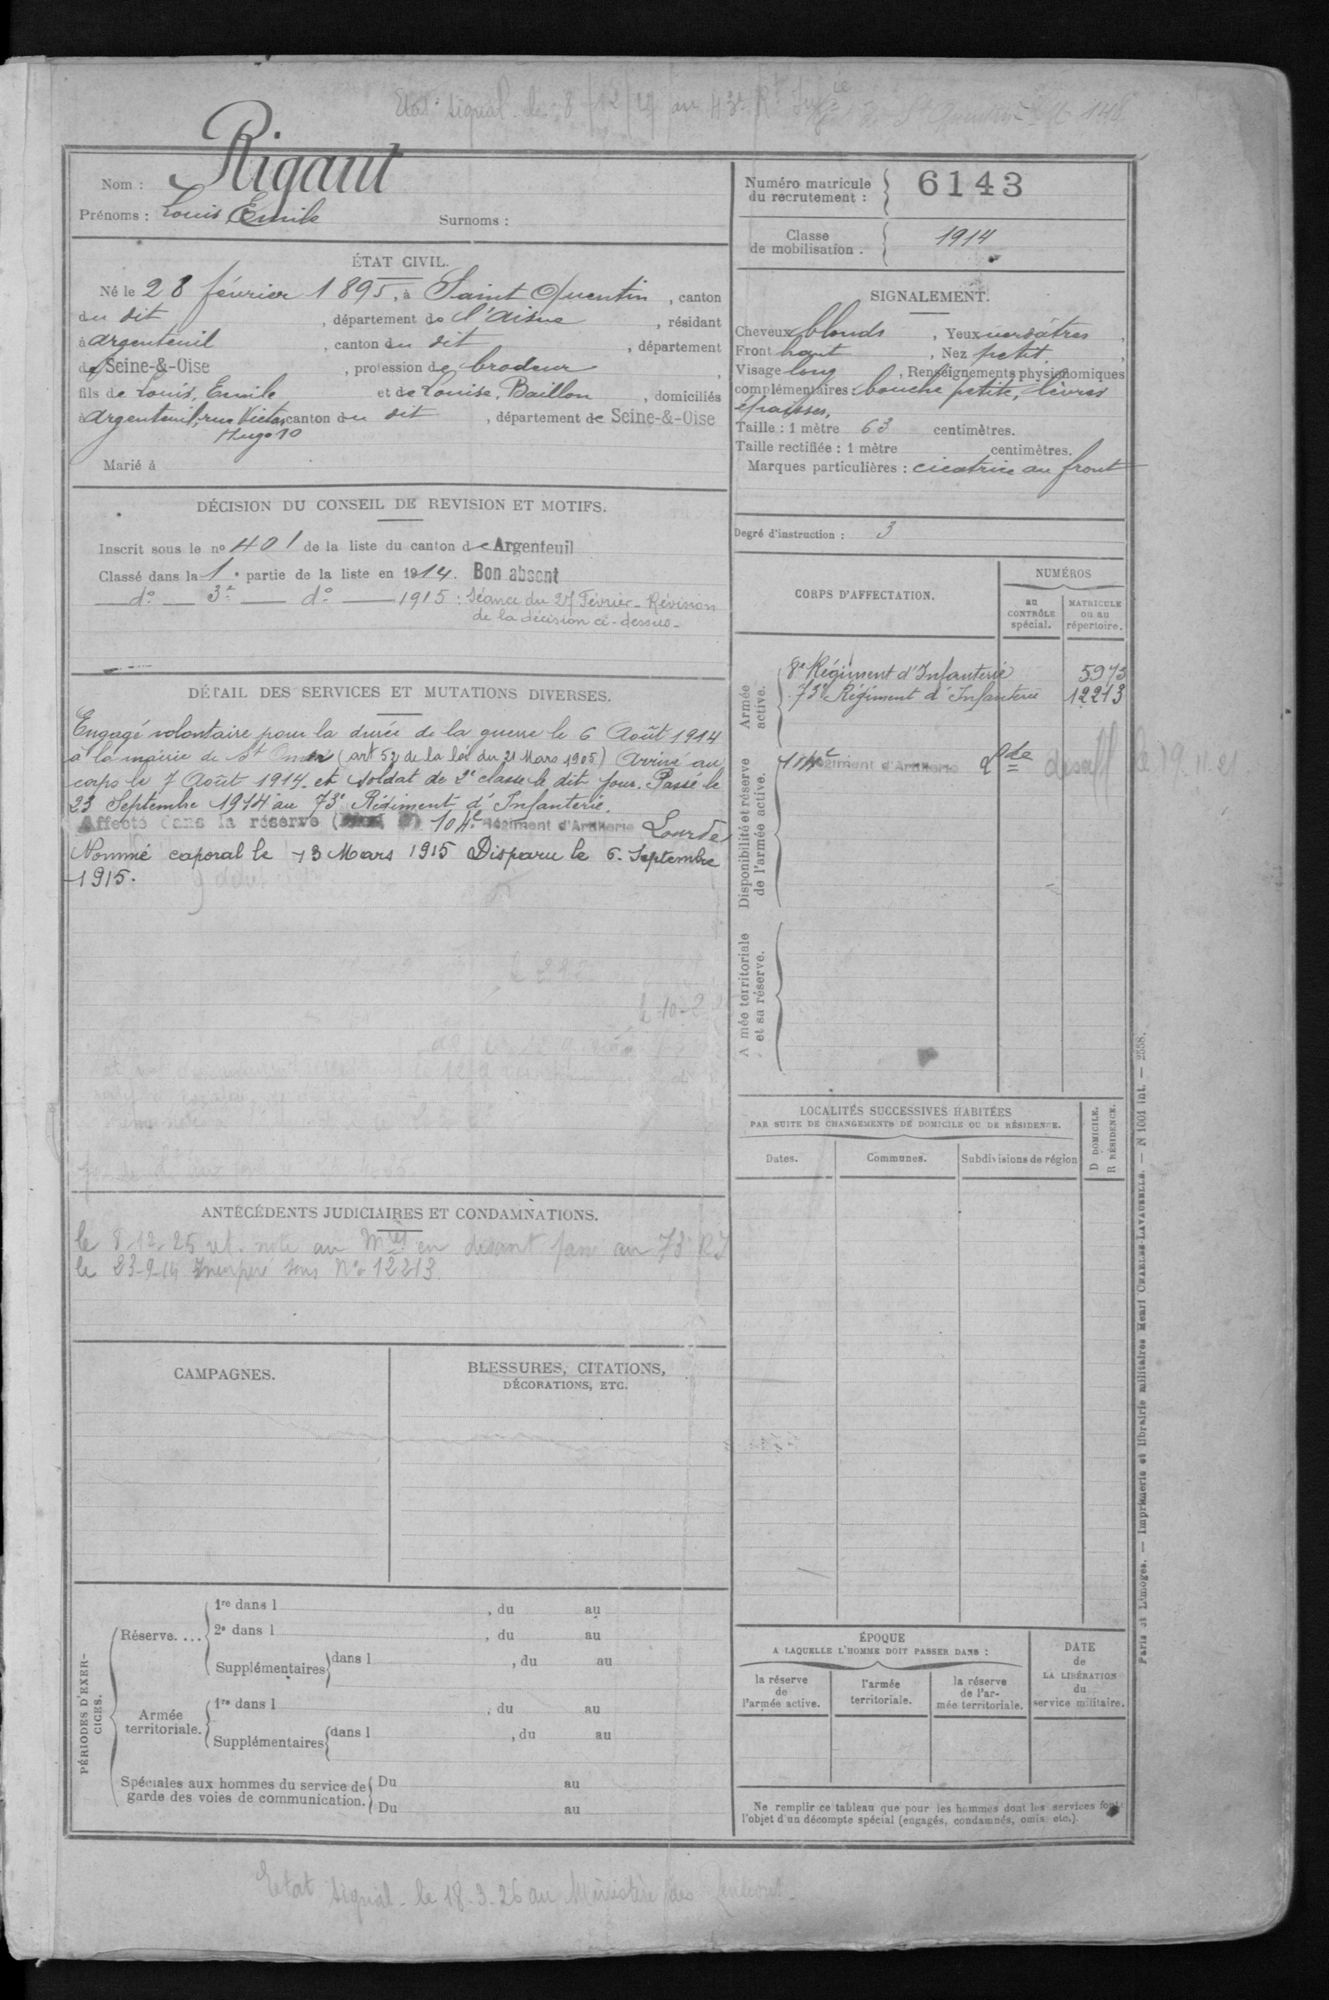 Etat signal. de 8/12/19 au 43e R. Infie
Nom : Rigaut
Prénoms : Louis, Emile Surnoms :
Numéro matricule du recrutement : 6143
Classe de mobilisation : 1914
ÉTAT CIVIL.
Né le 28 février 1895, à Saint Quentin, canton
du dit, département de l'Aisne, résidant
à argenteuil, canton du dit, département
de Seine-&-Oise, profession de brodeur,
fils de Louis, Emile et de Louise, Baillon, domiciliés
à argenteuil, rue Victor canton du dit, département de Seine-&-Oise
Hugo 10
Marié à
SIGNALEMENT.
Cheveux blonds, Yeux verdâtres,
Front haut, Nez petit,
Visage long, Renseignements physionomiques
complémentaires : bouche petite, lèvres
épaisses,
Taille : 1 mètre 63 centimètres.
Taille rectifiée : 1 mètre centimètres.
Marques particulières : cicatrice au front
Degré d'instruction : 3
DÉCISION DU CONSEIL DE REVISION ET MOTIFS.
Inscrit sous le no 401 de la liste du canton de Argenteuil
Classé dans la 1e partie de la liste en 1914. Bon absent
— do — 3e — do — 1915 : Séance du 27 Février - Révision
de la décision ci-dessus -
DÉTAIL DES SERVICES ET MUTATIONS DIVERSES.
Engagé volontaire pour la durée de la guerre le 6 Août 1914
à la mairie de St Omer (art 52 de la loi du 21 Mars 1905) Arrivé au
corps le 7 Août 1914. et soldat de 2e classe le dit jour. Passé le
23 Septembre 1914 au 73e Régiment d'Infanterie.
Affecté dans la réserve 104e Régiment d'Artillerie Lourde
Nommé caporal le 13 Mars 1915 Disparu le 6 Septembre
1915.
CORPS D'AFFECTATION.
NUMÉROS
au CONTRÔLE spécial.
MATRICULE ou au répertoire.
Armée active.
8e Régiment d'Infanterie 5973
73e Régiment d'Infanterie 12213
Disponibilité et réserve de l'armée active.
104e Régiment d'Artillerie Lde desaff le 19.11.21
A mée territoriale et sa réserve.
LOCALITÉS SUCCESSIVES HABITÉES
PAR SUITE DE CHANGEMENTS DE DOMICILE OU DE RÉSIDENCE.
D DOMICILE.
R RÉSIDENCE.
Dates. Communes. Subdivisions de région
ANTÉCÉDENTS JUDICIAIRES ET CONDAMNATIONS.
le 8-12-25 note au en disant passé au 73e RI
le 23-9-14 sous No 12213.
CAMPAGNES.
BLESSURES, CITATIONS,
DÉCORATIONS, ETC.
PÉRIODES D'EXERCICES.
Réserve....
1re dans l , du au
2e dans l , du au
Supplémentaires dans l , du au
Armée territoriale.
1re dans l , du au
Supplémentaires dans l , du au
Spéciales aux hommes du service de garde des voies de communication.
Du au
Du au
ÉPOQUE
A LAQUELLE L'HOMME DOIT PASSER DANS :
la réserve de l'armée active.
l'armée territoriale.
la réserve de l'armée territoriale.
DATE de LA LIBÉRATION du service militaire.
Ne remplir ce tableau que pour les hommes dont les services font
l'objet d'un décompte spécial (engagés, condamnés, omis, etc.).
Paris et Limoges. — Imprimerie et librairie militaires Henri CHARLES-LAVAUZELLE. — N 1001 int. — 2558.
Etat signal. le 18.3.26 au Ministère des